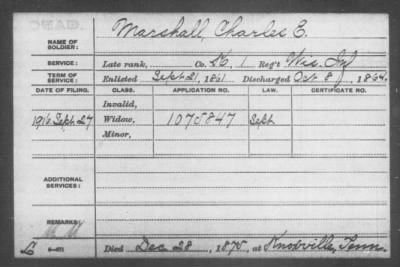 DEAD
Marshall, Charles E.
NAME OF SOLDIER:
SERVICE: Late rank, Co. K, 1 Reg't Wis. Inf
TERM OF SERVICE: Enlisted Sept. 21, 1861 Discharged Oct 8, 1864.
DATE OF FILING. CLASS. APPLICATION NO. LAW. CERTIFICATE NO.
Invalid,
1916 Sept. 27 Widow, 1075847 Sept
Minor,
ADDITIONAL SERVICES:
REMARKS:
Died Dec 28, 1875, at Knoxville, Tenn.